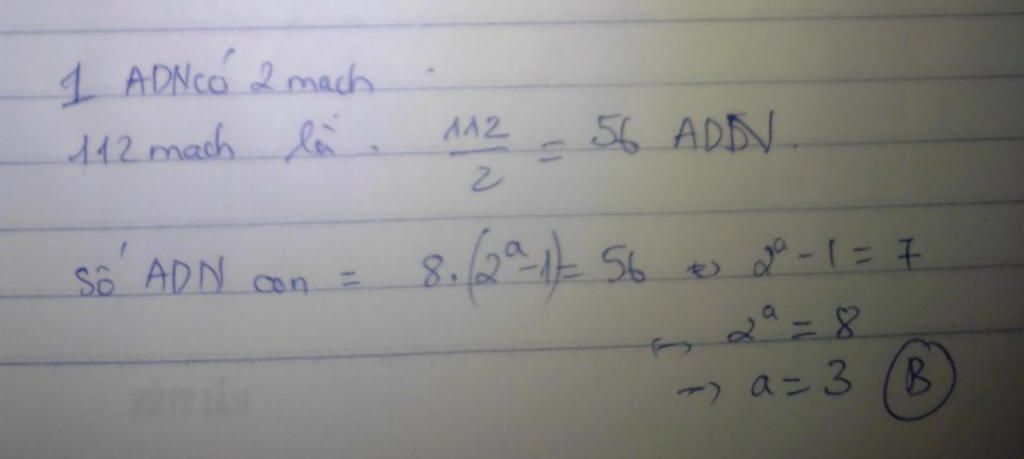 1 ADN có 2 mach
112 mach là. 112/2 = 56 ADN.
số ADN con = 8.(2^a-1) = 56 ↔ 2^a - 1 = 7
↔ 2^a = 8
→ a = 3 (B)